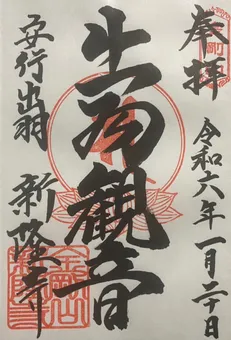 奉拝
令和六年一月二十日
出羽観音
安行出羽
新隆寺